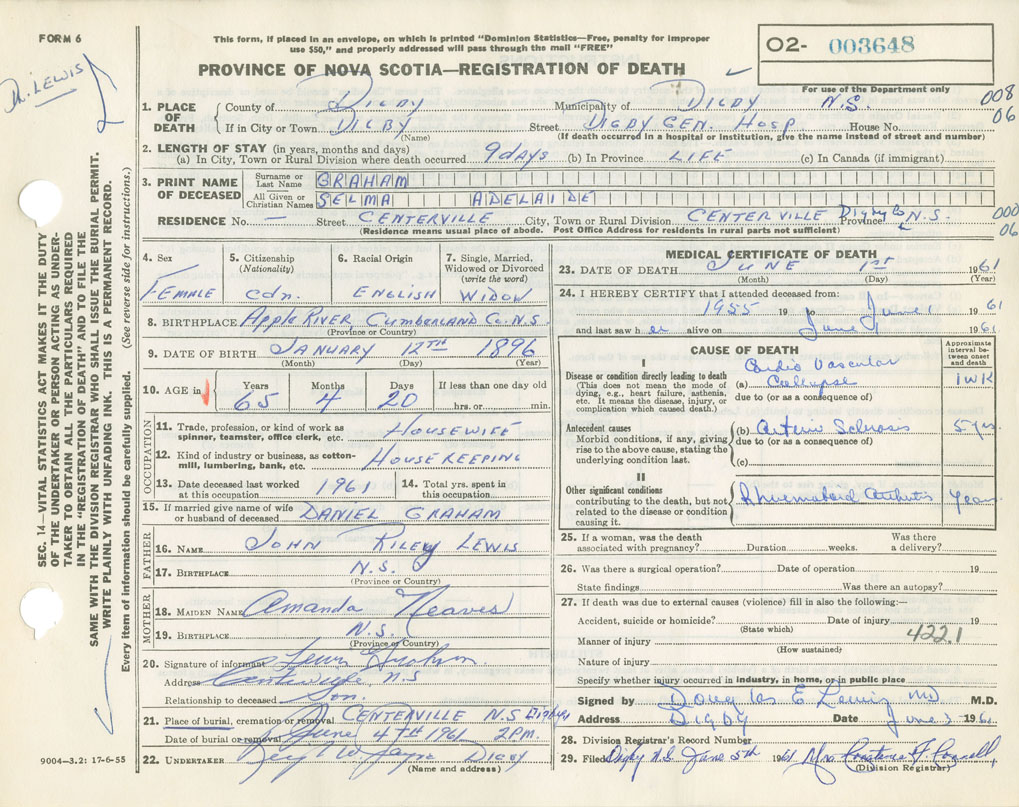 FORM 6
This form, if placed in an envelope, on which is printed "Dominion Statistics—Free, penalty for improper
use $50," and properly addressed will pass through the mail "FREE"
O2- 003648
PROVINCE OF NOVA SCOTIA—REGISTRATION OF DEATH
For use of the Department only
LEWIS
1. PLACE OF DEATH { County of DIGBY Municipality of DIGBY N.S. 008
If in City or Town DIGBY Street DIGBY GEN. HOSP House No. 06
(Name) (If death occurred in a hospital or institution, give the name instead of street and number)
2. LENGTH OF STAY (in years, months and days)
(a) In City, Town or Rural Division where death occurred 9 days (b) In Province LIFE (c) In Canada (if immigrant)
3. PRINT NAME OF DECEASED
Surname or Last Name GRAHAM
All Given or Christian Names SELMA ADELAIDE
RESIDENCE No. — Street CENTERVILLE City, Town or Rural Division CENTERVILLE Digby Co Province N.S. 000
(Residence means usual place of abode. Post Office Address for residents in rural parts not sufficient) 06
SEC. 14—VITAL STATISTICS ACT MAKES IT THE DUTY
OF THE UNDERTAKER OR PERSON ACTING AS UNDER-
TAKER TO OBTAIN ALL THE PARTICULARS REQUIRED
IN THE "REGISTRATION OF DEATH" AND TO FILE THE
SAME WITH THE DIVISION REGISTRAR WHO SHALL ISSUE THE BURIAL PERMIT.
WRITE PLAINLY WITH UNFADING INK. THIS IS A PERMANENT RECORD.
Every item of information should be carefully supplied. (See reverse side for instructions.)
4. Sex
FEMALE
5. Citizenship
(Nationality)
cdn.
6. Racial Origin
ENGLISH
7. Single, Married,
Widowed or Divorced
(write the word)
WIDOW
8. BIRTHPLACE Apple River, Cumberland Co. N.S.
(Province or Country)
9. DATE OF BIRTH JANUARY 12TH 1896
(Month) (Day) (Year)
10. AGE in
Years Months Days If less than one day old
65 4 20 hrs. or min.
OCCUPATION
11. Trade, profession, or kind of work as
spinner, teamster, office clerk, etc. HOUSEWIFE
12. Kind of industry or business, as cotton-
mill, lumbering, bank, etc. HOUSEKEEPING
13. Date deceased last worked
at this occupation 1961
14. Total yrs. spent in
this occupation
15. If married give name of wife
or husband of deceased DANIEL GRAHAM
FATHER
16. NAME JOHN RILEY LEWIS
17. BIRTHPLACE N.S.
(Province or Country)
MOTHER
18. MAIDEN NAME Amanda Neaves
19. BIRTHPLACE N.S.
(Province or Country)
20. Signature of informant Lewis Graham
Address Centerville, N.S
Relationship to deceased Son.
21. Place of burial, cremation or removal CENTERVILLE N.S Digby
Date of burial or removal June 4TH 1961 2PM.
22. UNDERTAKER W. Jayne DIGBY
(Name and address)
9004—3.2: 17-6-55
MEDICAL CERTIFICATE OF DEATH
23. DATE OF DEATH JUNE 1ST 1961
(Month) (Day) (Year)
24. I HEREBY CERTIFY that I attended deceased from:
1955 19 to June 1 1961
and last saw her alive on June 1 1961
CAUSE OF DEATH
Approximate
interval be-
tween onset
and death
I
Disease or condition directly leading to death
(This does not mean the mode of
dying, e.g., heart failure, asthenia,
etc. It means the disease, injury, or
complication which caused death.)
Cardio Vascular
(a) Collapse 1 WK
due to (or as a consequence of)
Antecedent causes
Morbid conditions, if any, giving
rise to the above cause, stating the
underlying condition last.
(b) Arterio Sclerosis 5 yrs.
due to (or as a consequence of)
(c)
II
Other significant conditions
contributing to the death, but not
related to the disease or condition
causing it.
Rheumatoid Arthritis years
25. If a woman, was the death
associated with pregnancy? Duration weeks. Was there
a delivery?
26. Was there a surgical operation? Date of operation 19
State findings Was there an autopsy?
27. If death was due to external causes (violence) fill in also the following:—
Accident, suicide or homicide? Date of injury 19
(State which) 422.1
Manner of injury
(How sustained)
Nature of injury
Specify whether injury occurred in industry, in home, or in public place
Signed by Douglas E Lewis MD M.D.
Address DIGBY Date June 3 1961
28. Division Registrar's Record Number
29. Filed Digby N.S. June 5th 1961 Mrs
(Division Registrar)